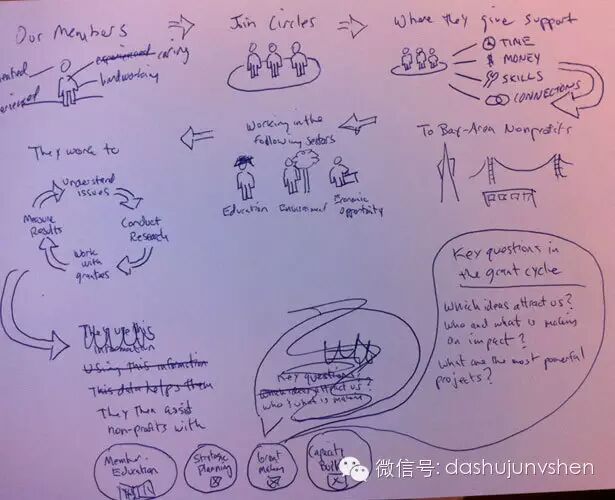 Our Members
experienced caring
hardworking
Join Circles
Where they give support
TIME
$ MONEY
SKILLS
CONNECTIONS
To Bay-Area Nonprofits
Working in the
following sectors
Education
Environmental
Economic
Opportunity
They work to
Understand
issues
Conduct
Research
Work
with
grantees
Measure
Results
They use this
information
Using this information
This data helps them
They then assist
non-profits with
Member
Education
Strategic
Planning
Grant
making
Capacity
Build
Key questions
Which ideas attract us?
who & what is making
Key questions in
the grant cycle
Which ideas attract us?
who and what is making
an impact?
What are the most powerful
projects?
微信号: dashujunvshen